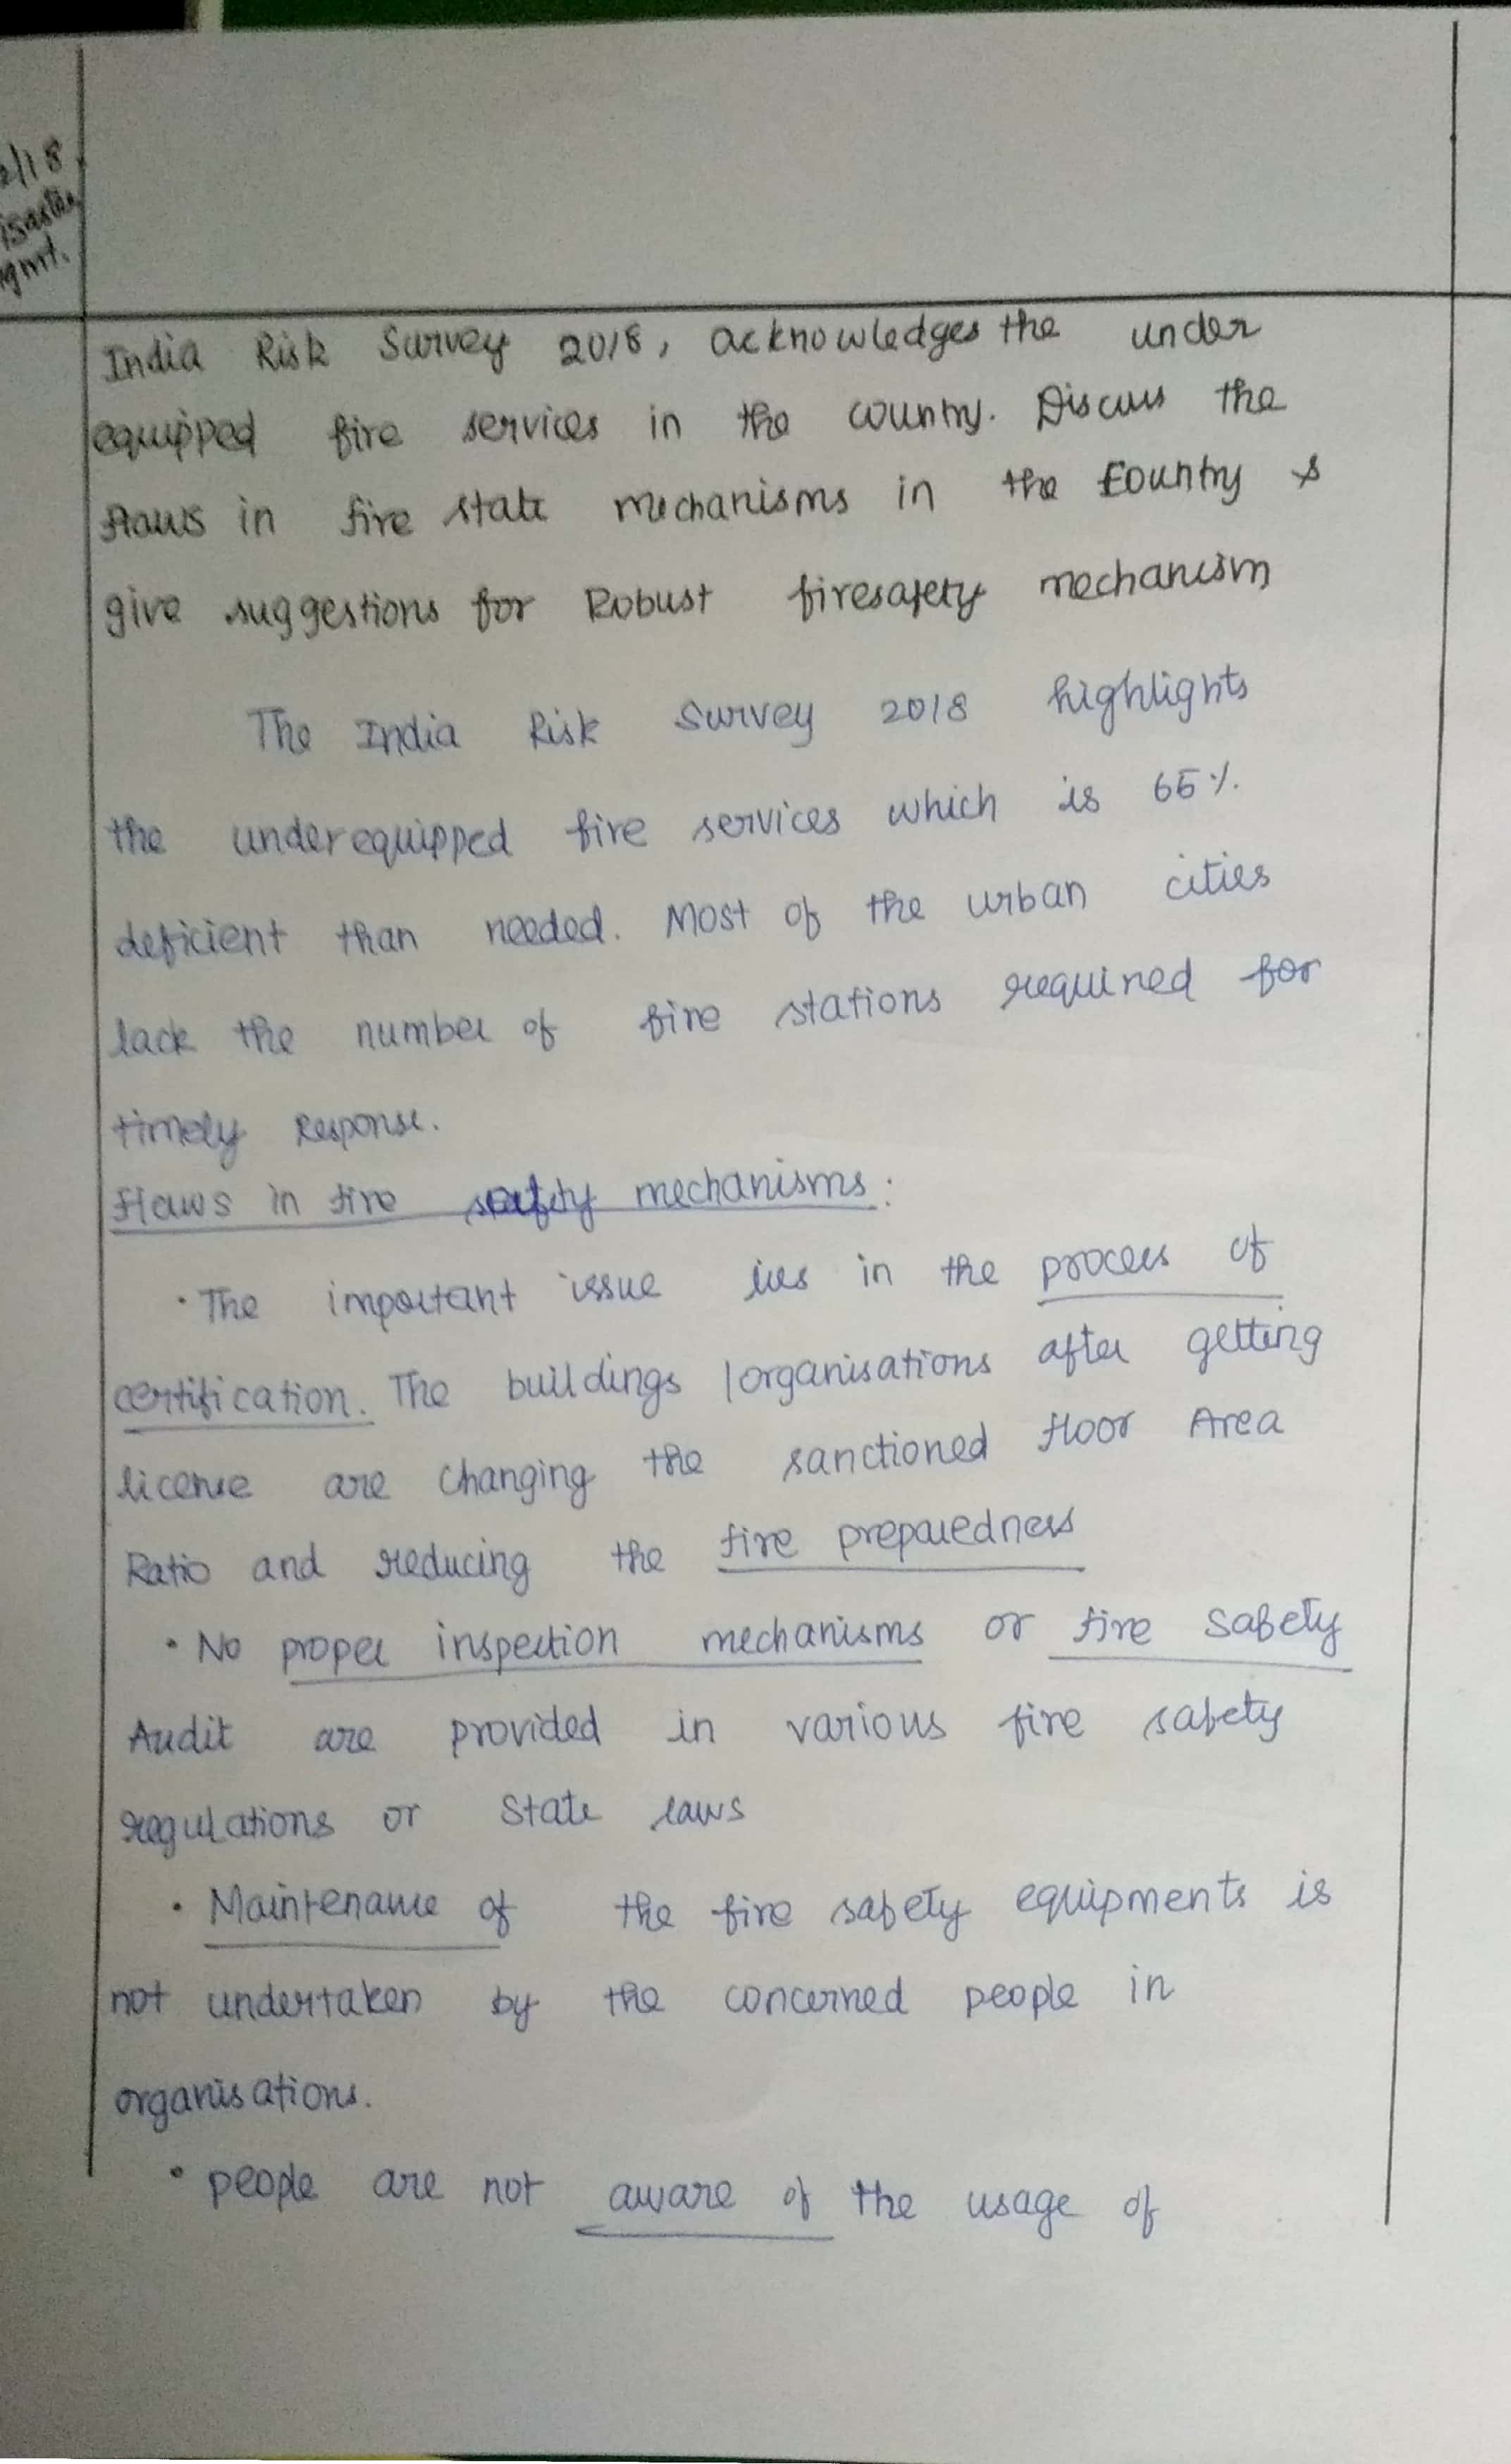 2/18
isaster
gmt.
India Risk Survey 2018, acknowledges the under
equipped fire services in the country. Discuss the
flaws in fire state mechanisms in the Country &
give suggestions for Robust firesafety mechanism
The India Risk Survey 2018 highlights
the underequipped fire services which is 65%
deficient than needed. Most of the urban cities
lack the number of fire stations required for
timely Response.
flaws in fire safety mechanisms:
• The important issue lies in the process of
certification. The buildings /organisations after getting
license are changing the sanctioned floor Area
Ratio and reducing the fire preparedness
• No proper inspection mechanisms or fire safety
Audit are provided in various fire safety
regulations or State laws
• Maintenance of the fire safety equipments is
not undertaken by the concerned people in
organisations.
• people are not aware of the usage of